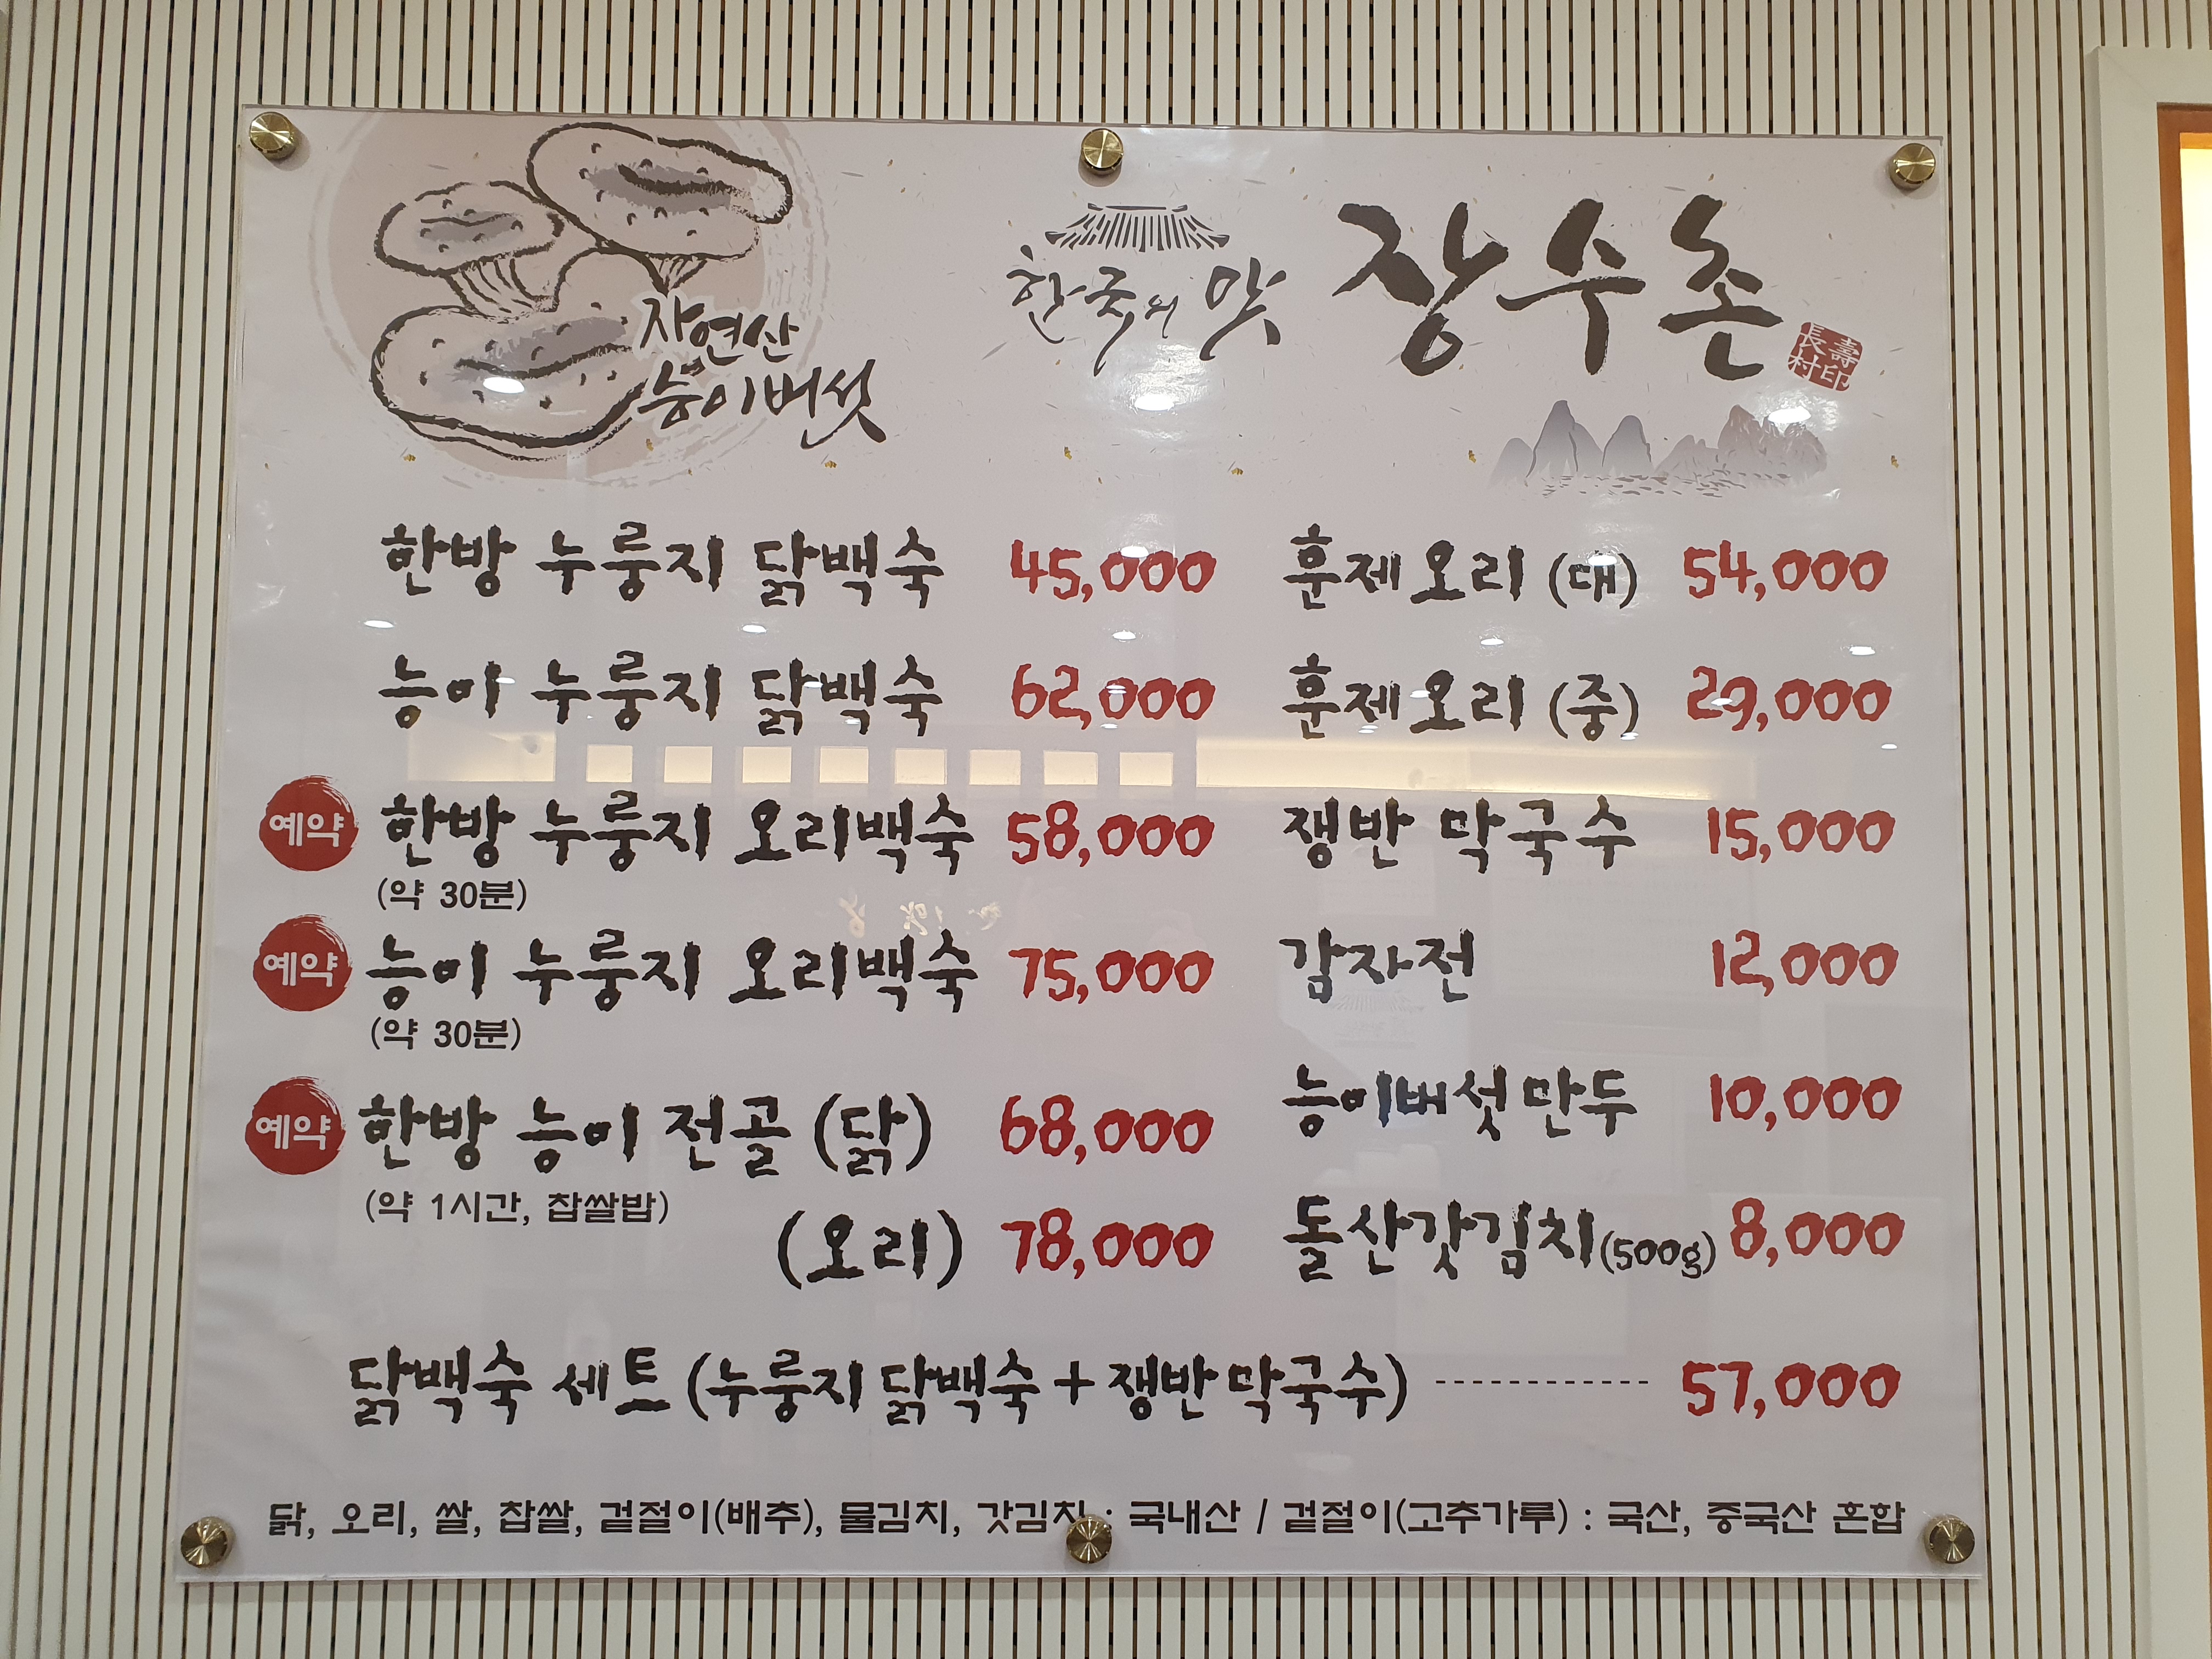 자연산
능이버섯
한국의 맛 장수촌
長壽
村印
한방 누룽지 닭백숙 45,000
능이 누룽지 닭백숙 62,000
예약 한방 누룽지 오리백숙 58,000
(약 30분)
예약 능이 누룽지 오리백숙 75,000
(약 30분)
예약 한방 능이 전골 (닭) 68,000
(약 1시간, 찹쌀밥)
(오리) 78,000
훈제오리 (대) 54,000
훈제오리 (중) 29,000
쟁반 막국수 15,000
감자전 12,000
능이버섯만두 10,000
돌산갓김치(500g) 8,000
닭백숙 세트 (누룽지 닭백숙 + 쟁반막국수) 57,000
닭, 오리, 쌀, 찹쌀, 겉절이(배추), 물김치, 갓김치 : 국내산 / 겉절이(고추가루) : 국산, 중국산 혼합